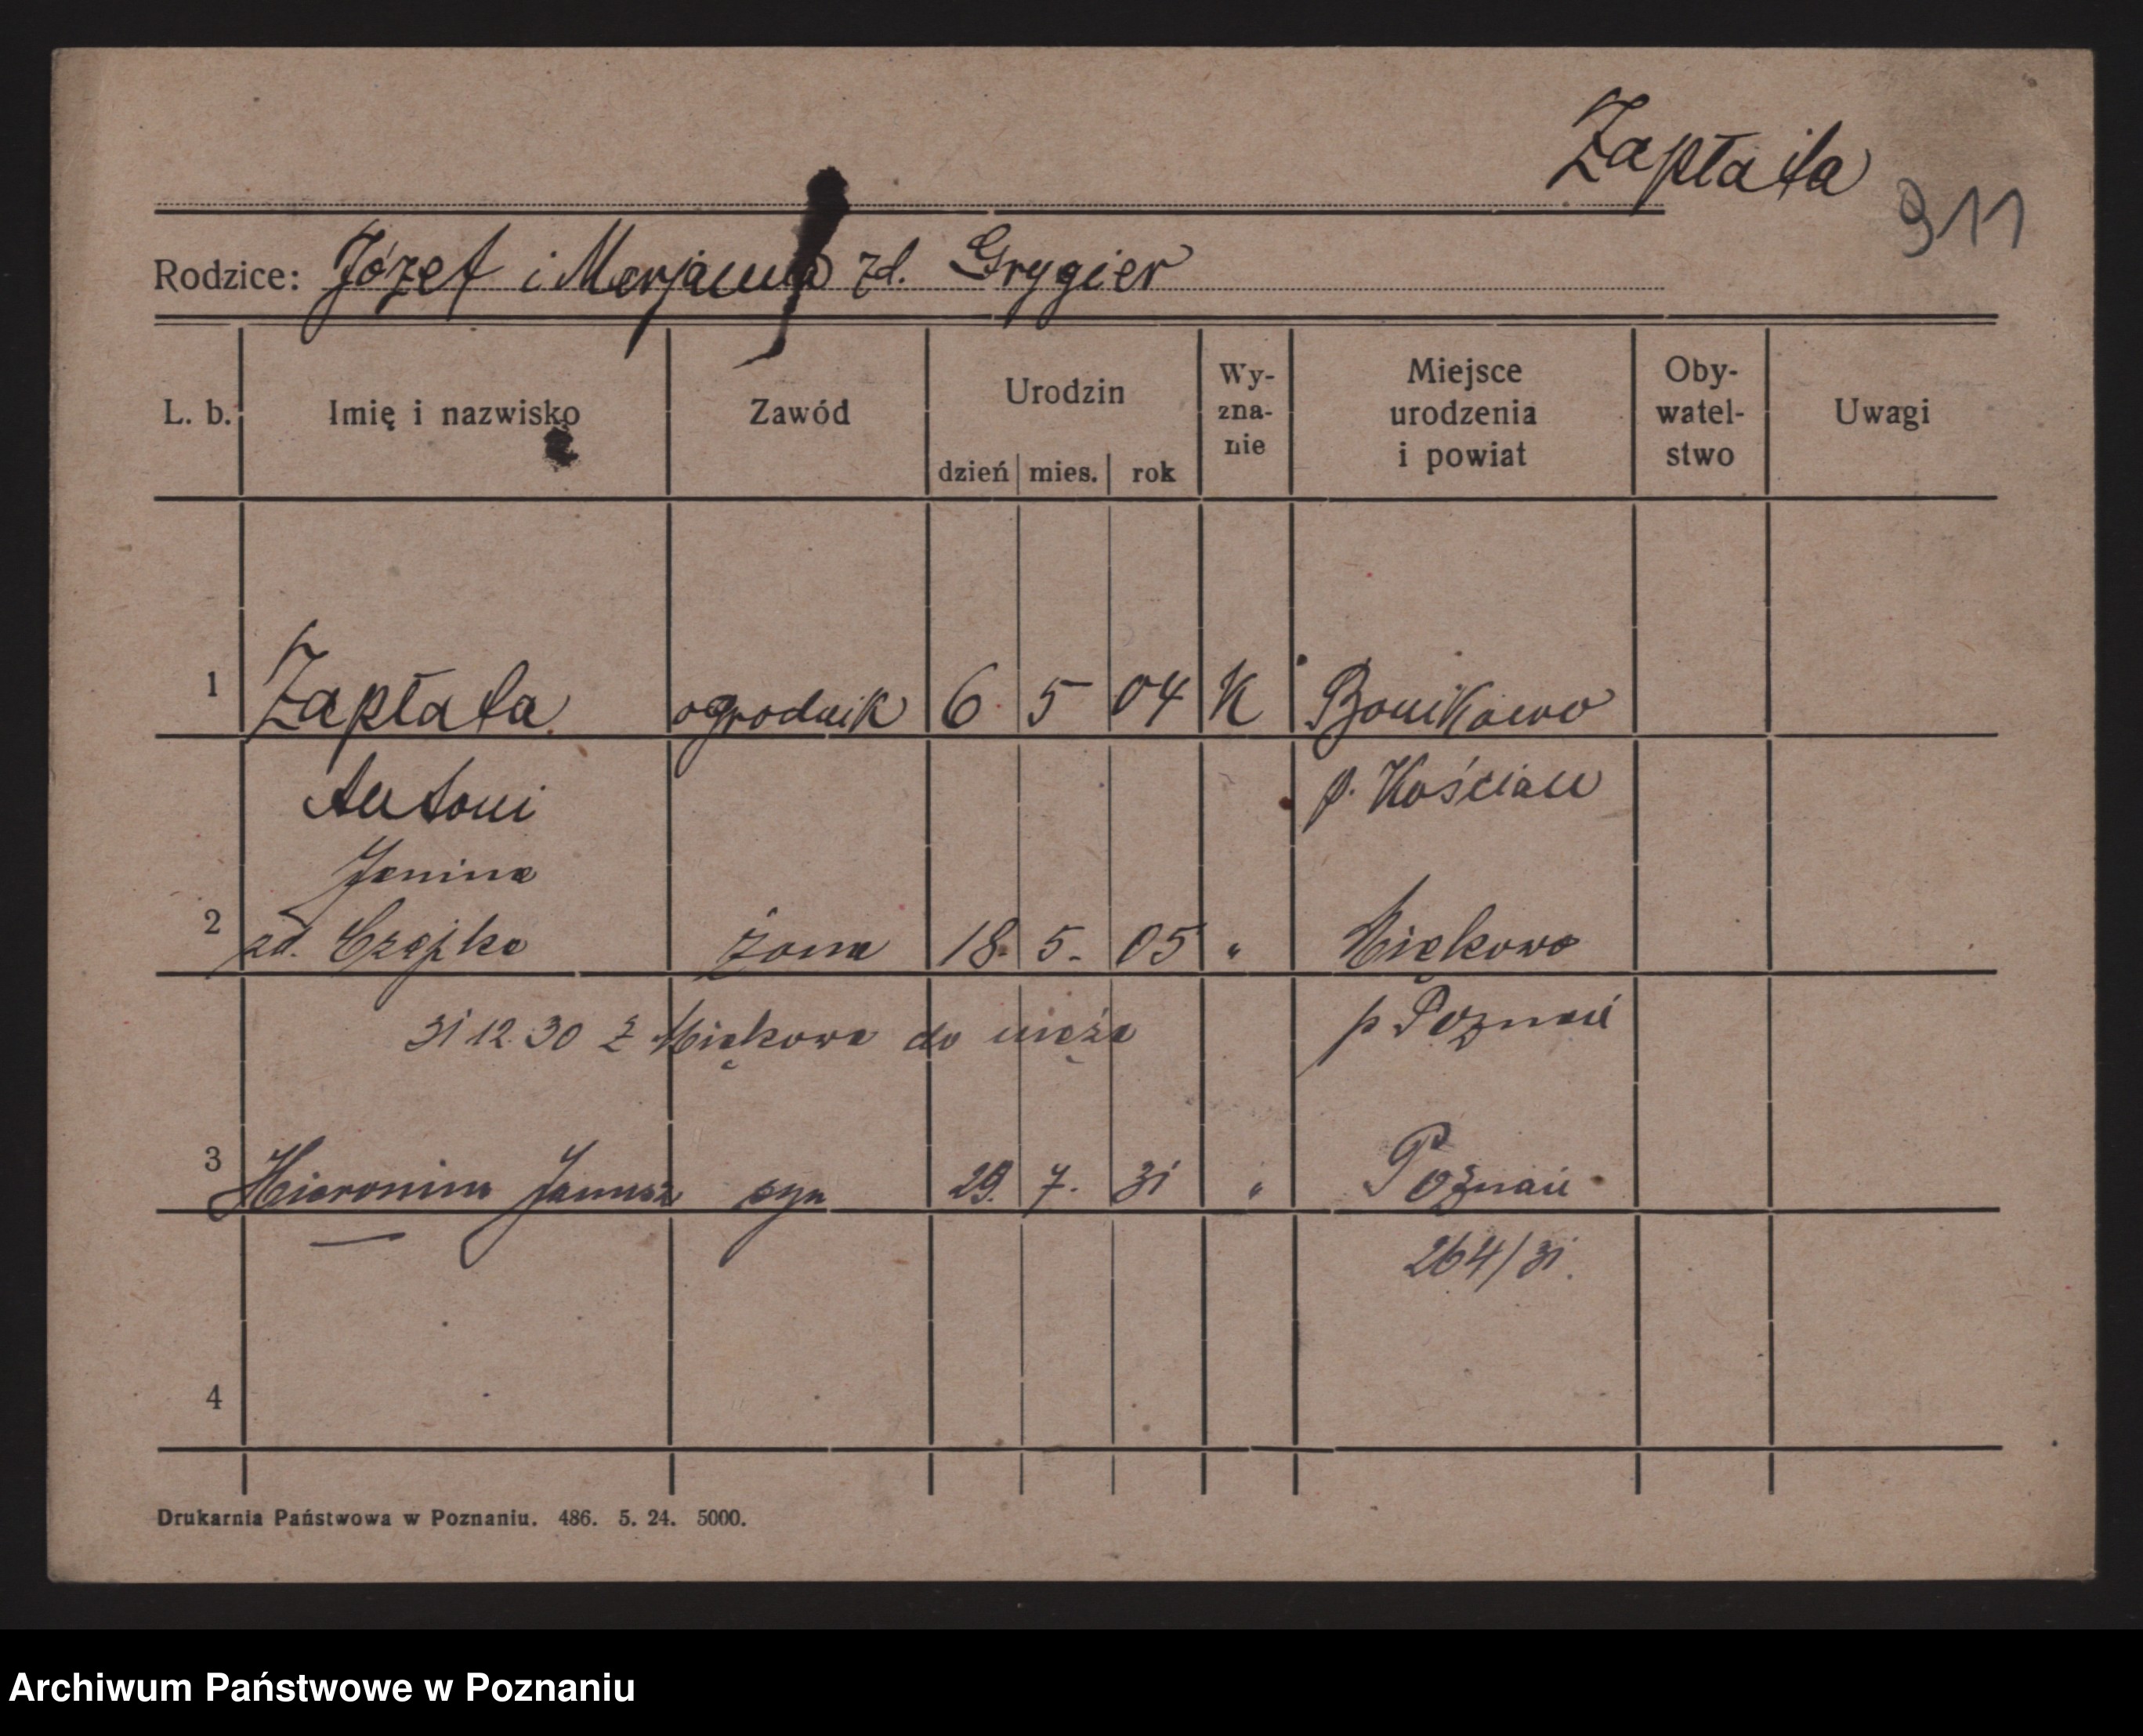 Zapłata
911
Rodzice: Józef i Marjanna zd. Grygier
L. b. Imię i nazwisko Zawód Urodzin dzień mies. rok Wy-zna-nie Miejsce urodzenia i powiat Oby-watel-stwo Uwagi
1 Zapłata ogrodnik 6 5 04 K Bonikowo
Antoni p. Kościan
Janina
2 zd. Czajka żona 18. 5. 05 " Miękowo
31 12 30 z Miękowa do męża p Poznań
3 Hieronim Janusz syn 29. 7. 31 " Poznań
264/31.
4
Drukarnia Państwowa w Poznaniu. 486. 5. 24. 5000.
Archiwum Państwowe w Poznaniu